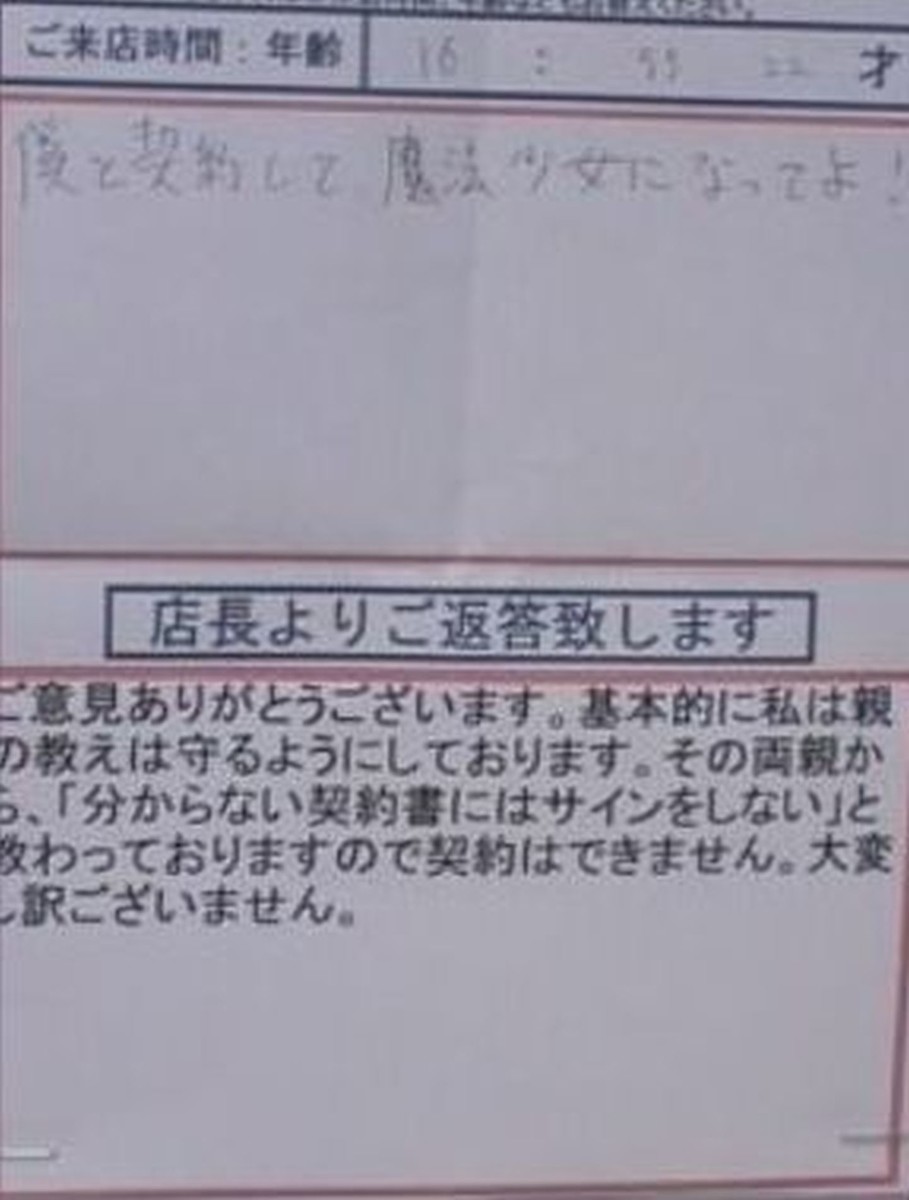 ご来店時間：年齢 16 : 55 22 才
僕と契約して、魔法少女になってよ！
店長よりご返答致します
ご意見ありがとうございます。基本的に私は親
の教えは守るようにしております。その両親か
ら、「分からない契約書にはサインをしない」と
教わっておりますので契約はできません。大変
し訳ございません。